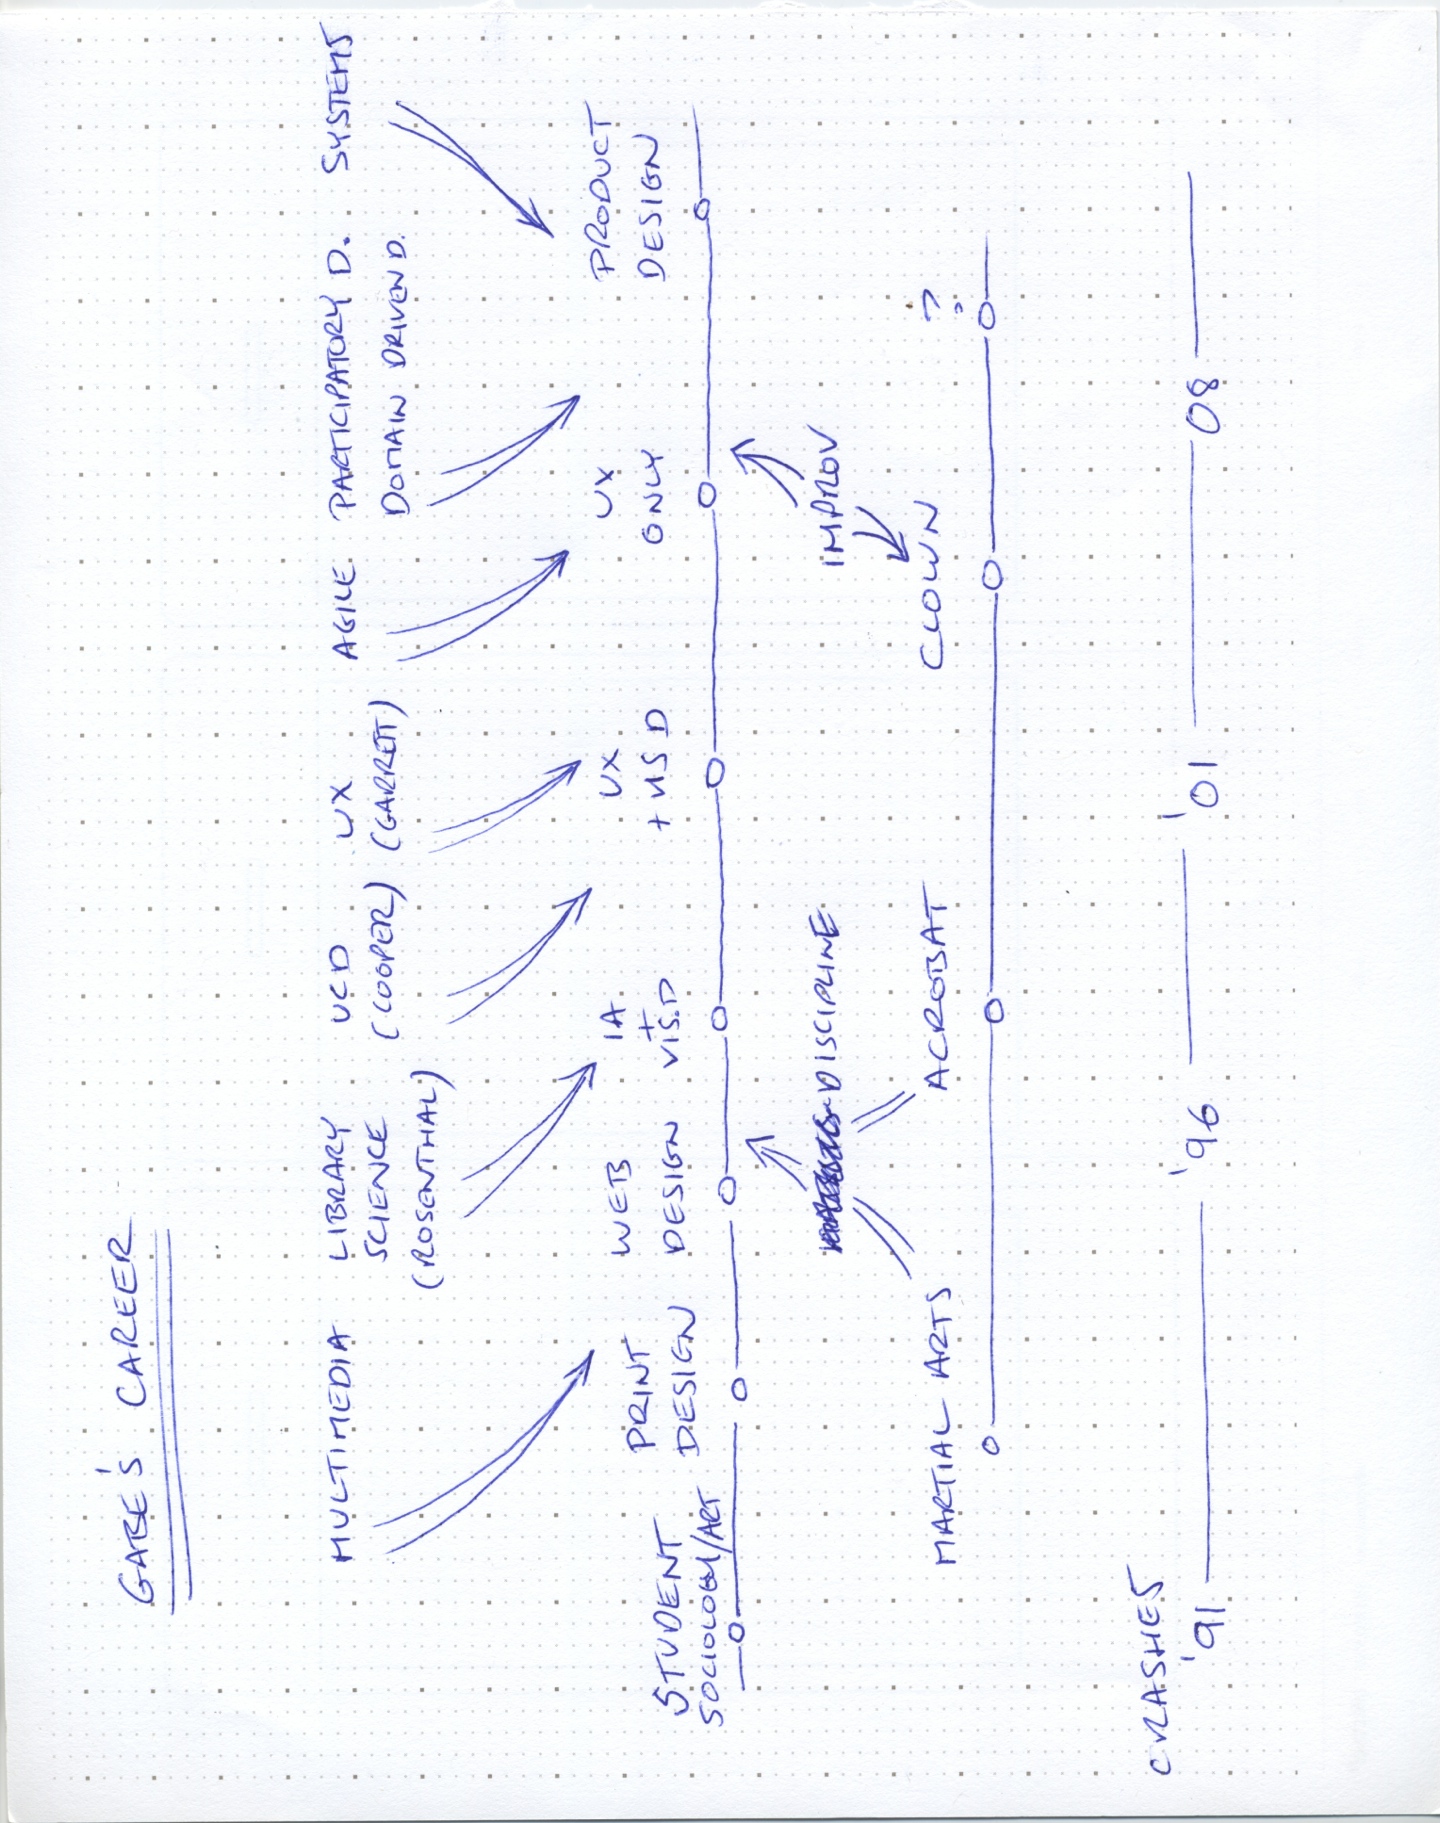 GABE'S CAREER
MULTIMEDIA
LIBRARY
SCIENCE
(ROSENTHAL)
UCD
(COOPER)
UX
(GARRETT)
AGILE
PARTICIPATORY D.
DOMAIN DRIVEN D.
SYSTEMS
STUDENT
SOCIOLOGY/ART
PRINT
DESIGN
WEB
DESIGN
IA
+
VIS.D
UX
+ VIS D
UX
ONLY
PRODUCT
DESIGN
DISCIPLINE
IMPROV
MARTIAL ARTS
ACROBAT
CLOWN
?
CRASHES
'91
'96
'01
08